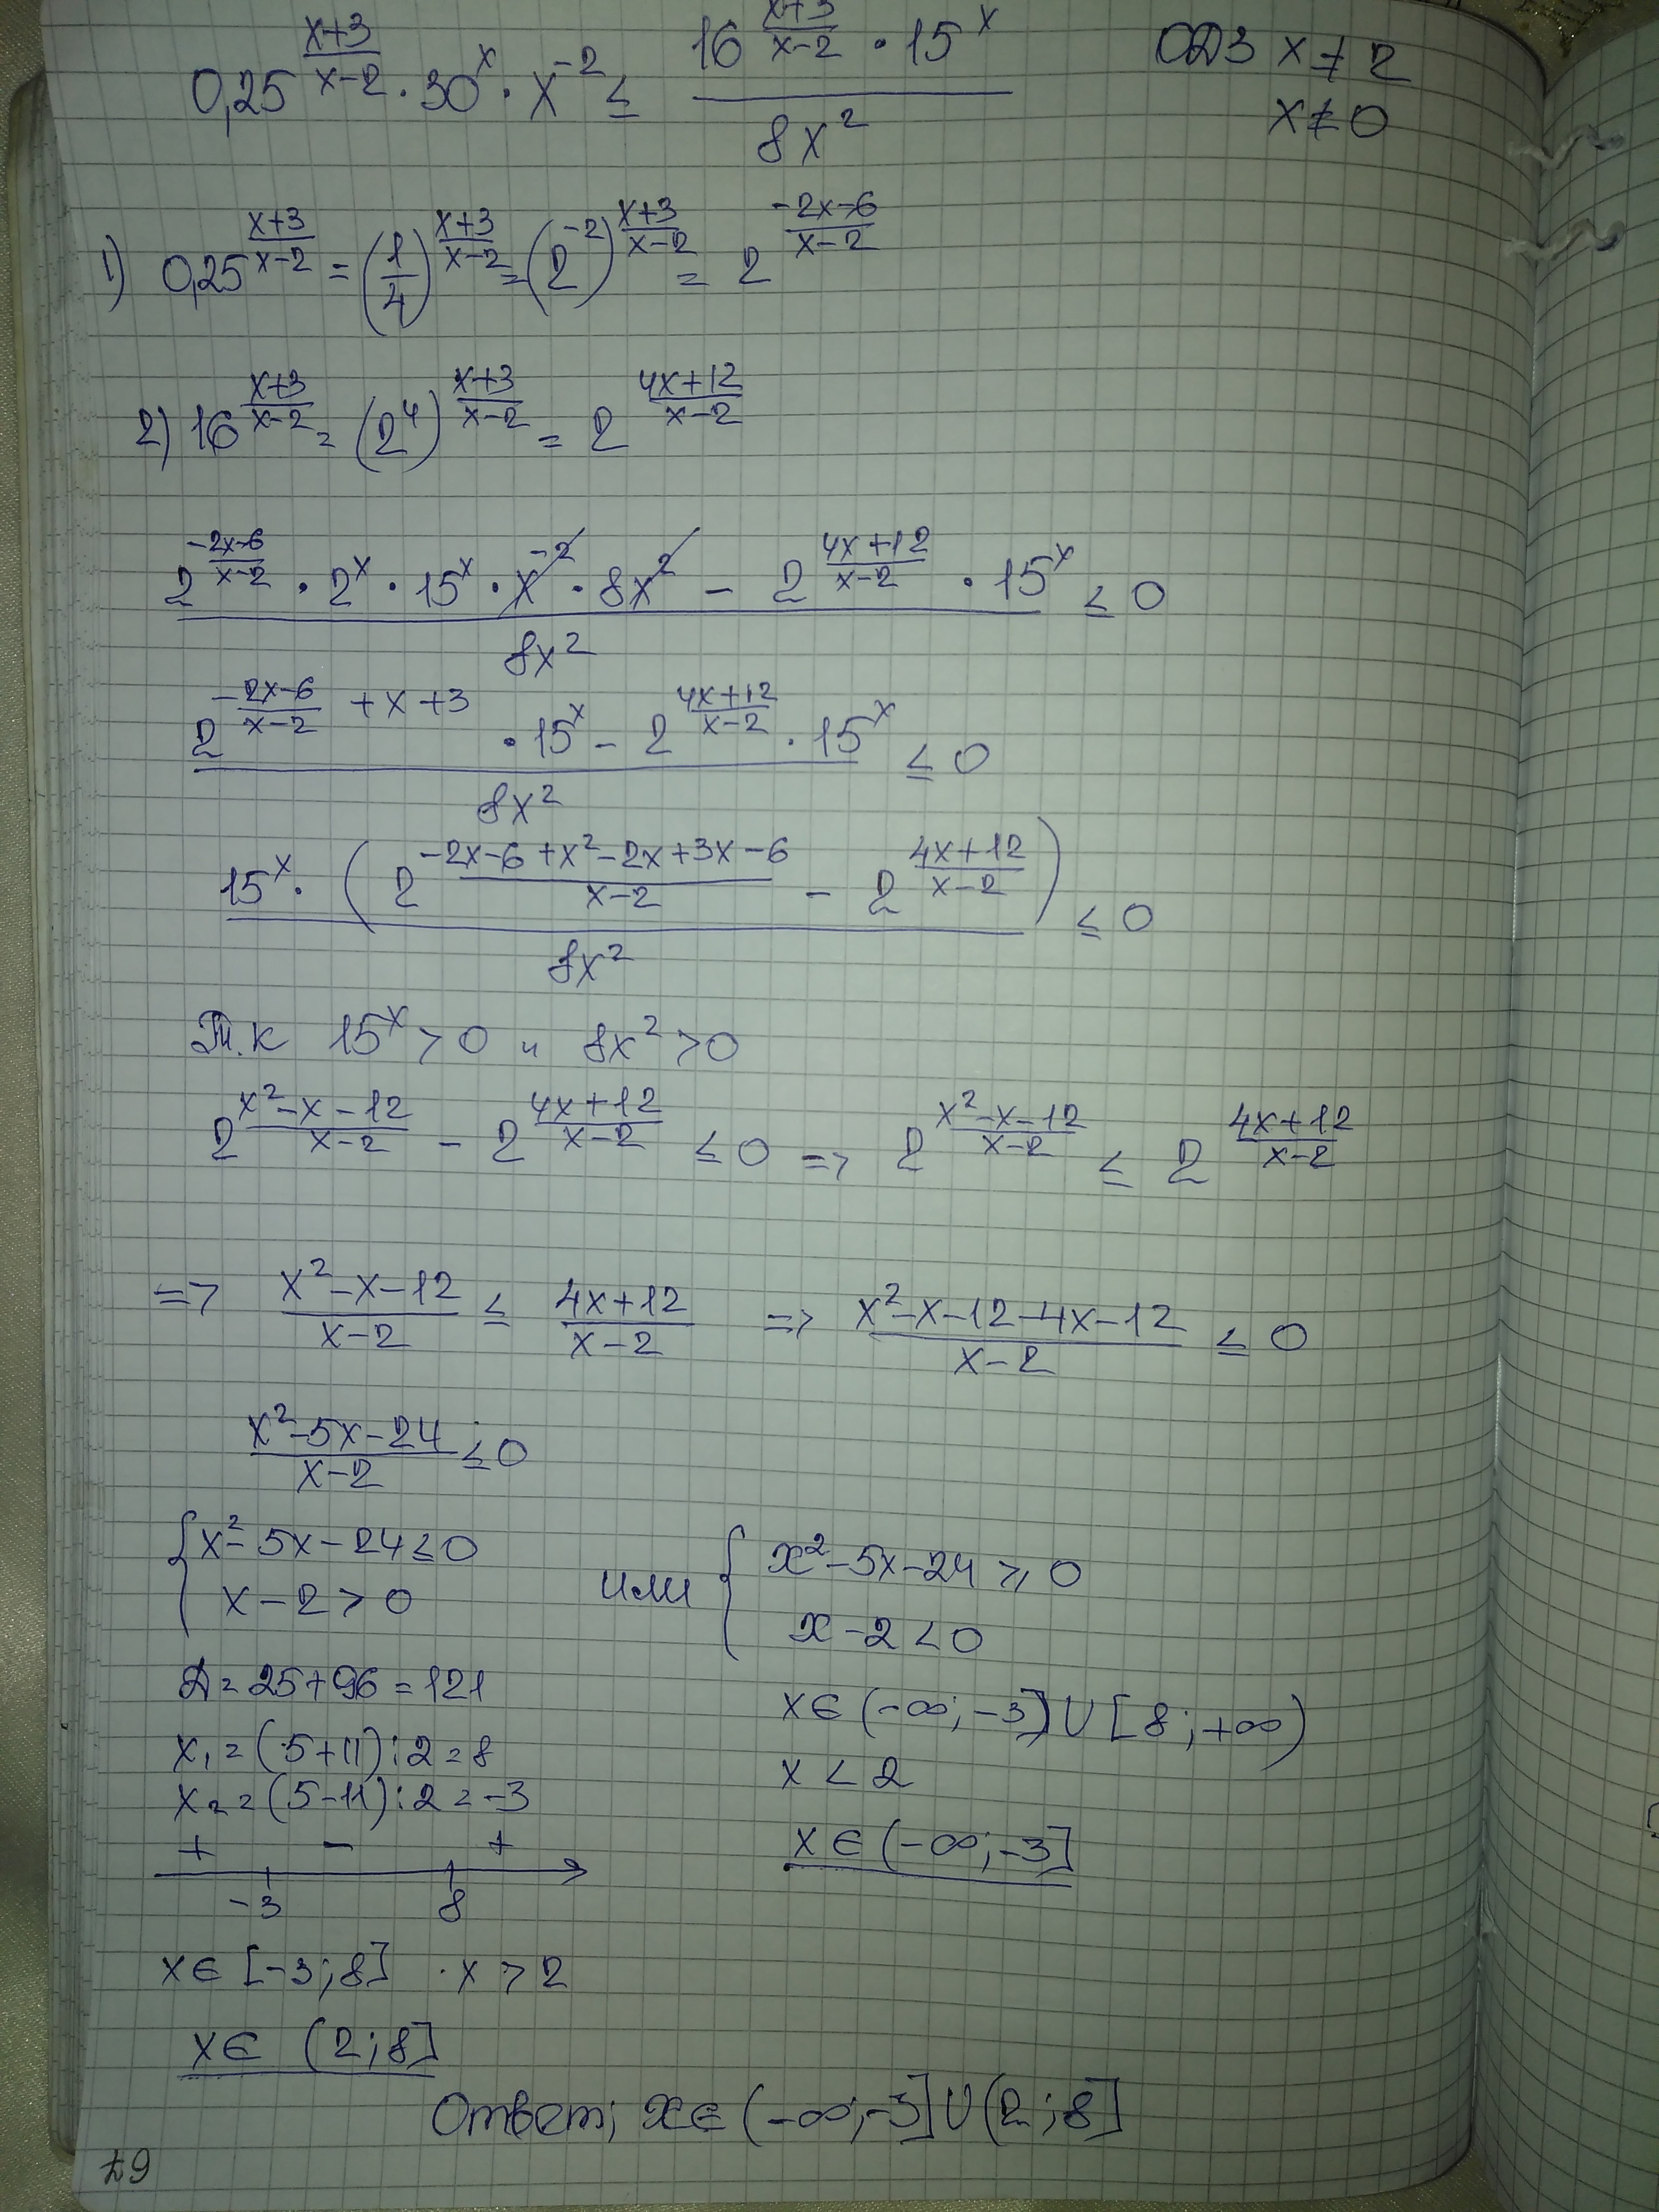 0,25^((x+3)/(x-2)) · 30^x · x^(-2) ≤ (16^((x+3)/(x-2)) · 15^x)/(8x²) ОДЗ x ≠ 2
x ≠ 0
1) 0,25^((x+3)/(x-2)) = (1/4)^((x+3)/(x-2)) = (2^(-2))^((x+3)/(x-2)) = 2^((-2x-6)/(x-2))
2) 16^((x+3)/(x-2)) = (2^4)^((x+3)/(x-2)) = 2^((4x+12)/(x-2))
(2^((-2x-6)/(x-2)) · 2^x · 15^x · x^(-2) · 8x² - 2^((4x+12)/(x-2)) · 15^x)/(8x²) ≤ 0
(2^(-(2x-6)/(x-2) + x + 3) · 15^x - 2^((4x+12)/(x-2)) · 15^x)/(8x²) ≤ 0
(15^x · (2^((-2x-6+x²-2x+3x-6)/(x-2)) - 2^((4x+12)/(x-2))))/(8x²) ≤ 0
Т.к 15^x > 0 и 8x² > 0
2^((x²-x-12)/(x-2)) - 2^((4x+12)/(x-2)) ≤ 0 => 2^((x²-x-12)/(x-2)) ≤ 2^((4x+12)/(x-2))
=> (x²-x-12)/(x-2) ≤ (4x+12)/(x-2) => (x²-x-12-4x-12)/(x-2) ≤ 0
(x²-5x-24)/(x-2) ≤ 0
{ x²-5x-24 ≤ 0
x-2 > 0
или { x²-5x-24 ≥ 0
x-2 < 0
Д = 25+96 = 121
x₁ = (5+11):2 = 8
x₂ = (5-11):2 = -3
+ - +
-3 8
x ∈ [-3;8] · x > 2
x ∈ (2;8]
x ∈ (-∞;-3] ∪ [8;+∞)
x < 2
x ∈ (-∞;-3]
Ответ; x ∈ (-∞;-3] ∪ (2;8]